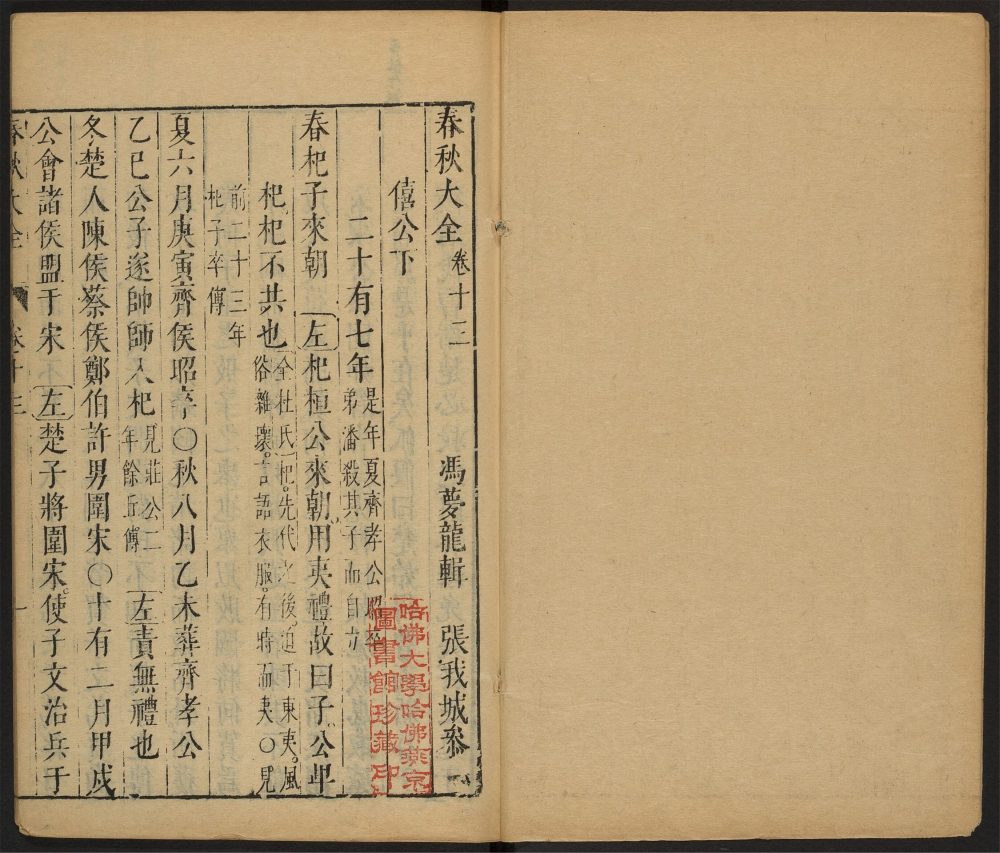 春秋大全 卷十三 馮夢龍輯 張我城參
僖公下
二十有七年 是年夏齊孝公昭卒
弟潘殺其子而自立
春杞子來朝 左 杞桓公來朝用夷禮故曰子公卑
杞杞不共也 全杜氏杞先代之後迫于東夷。風
俗雜壞。言語衣服。有時而夷〇見
前二十三年
杞子卒傳
夏六月庚寅齊侯昭卒〇秋八月乙未葬齊孝公
乙巳公子遂帥師入杞 見莊公二
年餘丘傳 左 責無禮也
冬楚人陳侯蔡侯鄭伯許男圍宋〇十有二月甲戌
公會諸侯盟于宋 左 楚子將圍宋。使子文治兵于
春秋大全 卷十三 一
哈佛大學哈佛燕京
圖書館珍藏印